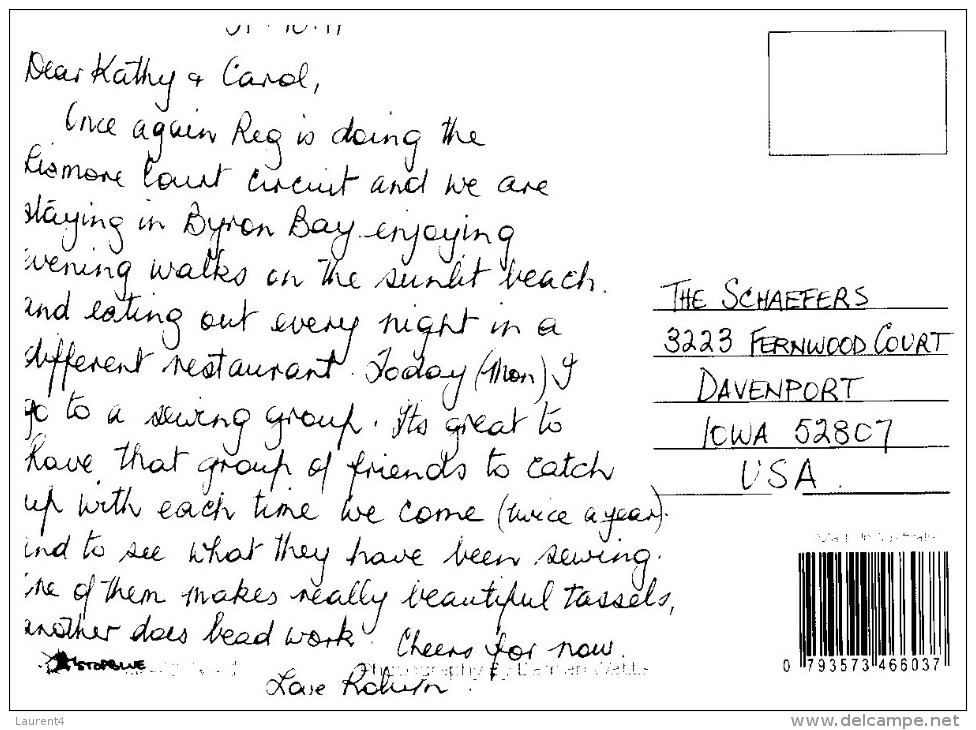 Dear Kathy & Carol,
Once again Reg is doing the
Lismore Court circuit and we are
staying in Byron Bay enjoying
evening walks on the sunlit beach.
and eating out every night in a
different restaurant. Today (Mon) I
go to a sewing group. Its great to
have that group of friends to catch
up with each time we come (twice a year).
and to see what they have been sewing.
One of them makes really beautiful tassels,
another does bead work. Cheers for now.
Love Robyn.
THE SCHAEFERS
3223 FERNWOOD COURT
DAVENPORT
IOWA 52807
USA.
NSTOPBLUE
Photography by
0 793573 466037
Laurent4
www.delcampe.net